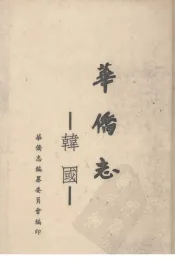 華僑志
—韓國—
華僑志編纂委員會編印